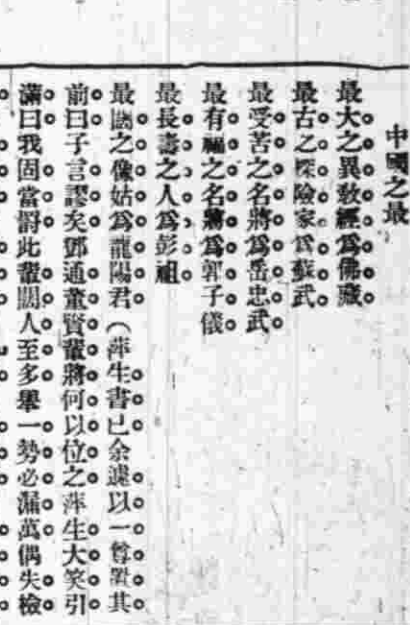 中國之最
最大之異敎經爲佛藏
最古之探險家爲蘇武
最受苦之名將爲岳忠武
最有福之名將爲郭子儀
最長壽之人爲彭祖
最之像姑爲龍陽君（萍生書已余遽以一尊置其
前曰子言謬矣鄧通董賢輩將何以位之萍生大笑引
滿曰我固當罸此輩闊人至多舉一勢必漏萬偶失檢